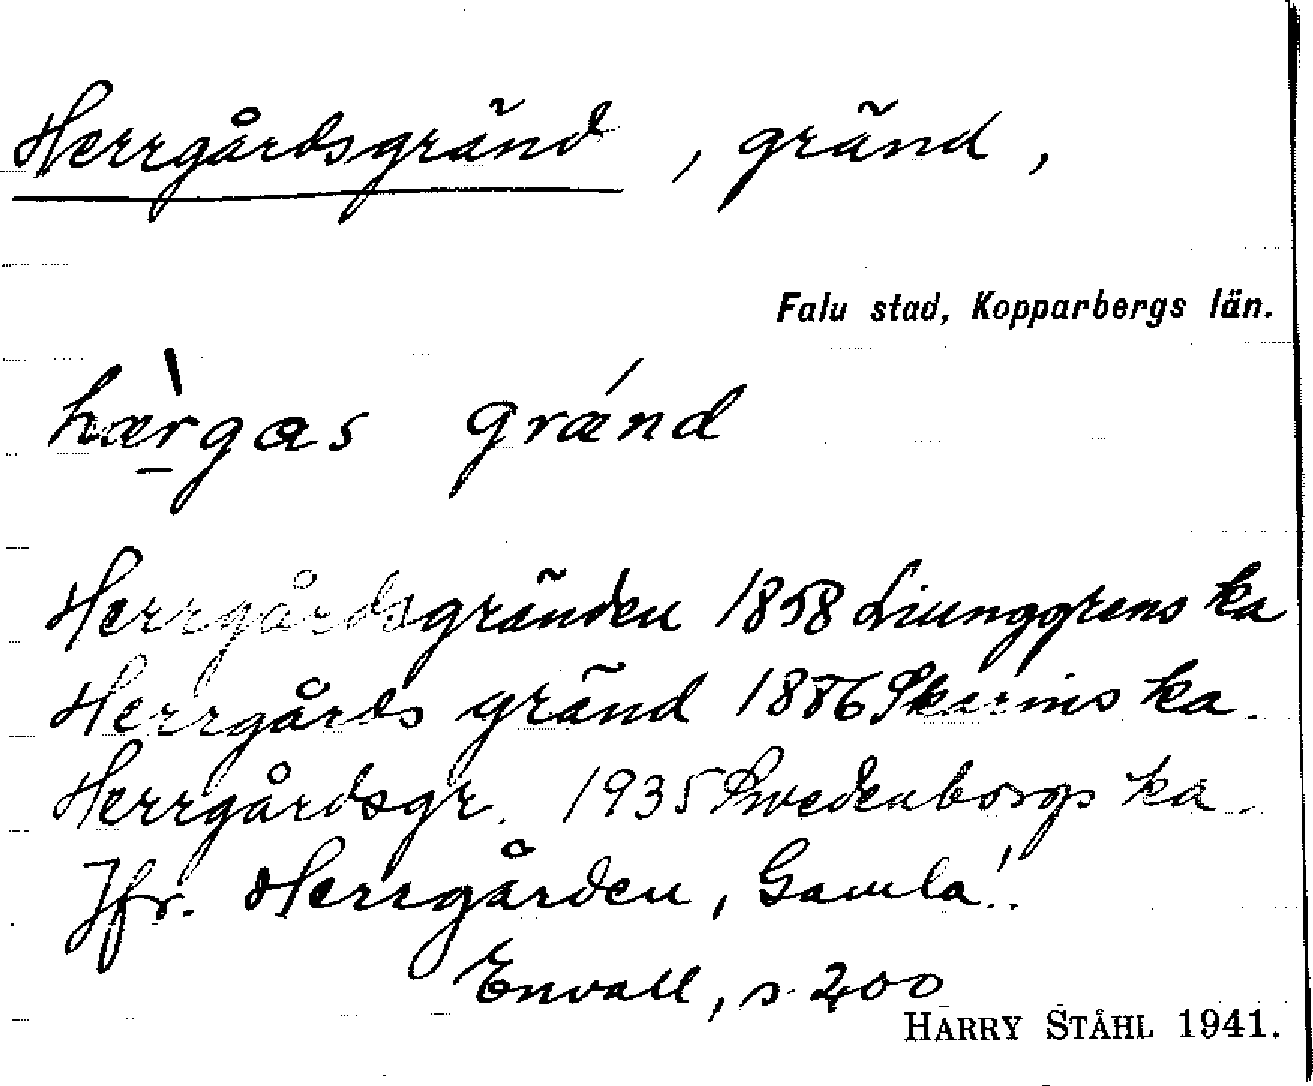 Herrgårdsgränd, gränd,
Falu stad, Kopparbergs län.
hæ̀rgas grǽnd
Herrgårdsgränden 1858 Liunggrens ka
Herrgårds gränd 1886 Skarins ka.
Herrgårdsgr. 1935 Swedenborgs ka
Jfr. Herrgården, Gamla!
Envall, s. 200
HARRY STÅHL 1941.